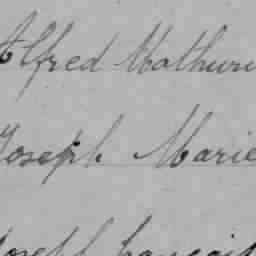 Alfred Mathuri
Joseph Marie
Joseph françois